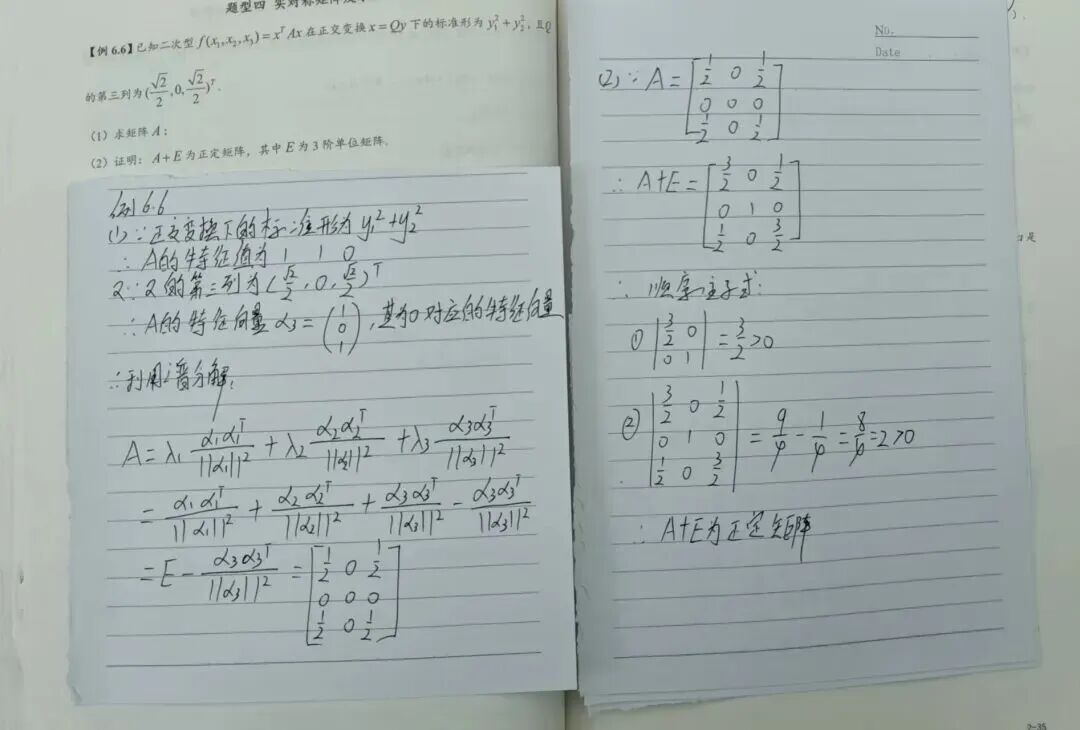 题型四 实对称矩阵
【例 6.6】已知二次型 f(x₁,x₂,x₃)=xᵀAx 在正交变换 x=Qy 下的标准形为 y₁²+y₂²，且Q
的第三列为(√2/2, 0, √2/2)ᵀ.
（1）求矩阵 A；
（2）证明：A+E 为正定矩阵，其中 E 为 3 阶单位矩阵.
例6.6
(1) ∵正交变换下的标准形为 y₁²+y₂²
∴ A的特征值为 1 1 0
又∵Q的第三列为(√2/2, 0, √2/2)ᵀ
∴A的特征向量 α₃=(1 0 1), 其为0对应的特征向量
∴利用谱分解:
A=λ₁ α₁α₁ᵀ/||α₁||² + λ₂ α₂α₂ᵀ/||α₂||² + λ₃ α₃α₃ᵀ/||α₃||²
= α₁α₁ᵀ/||α₁||² + α₂α₂ᵀ/||α₂||² + α₃α₃ᵀ/||α₃||² - α₃α₃ᵀ/||α₃||²
=E - α₃α₃ᵀ/||α₃||² = [1/2 0 1/2
0 0 0
1/2 0 1/2]
No.
Date
(2) ∵ A= [1/2 0 1/2
0 0 0
1/2 0 1/2]
∴ A+E= [3/2 0 1/2
0 1 0
1/2 0 3/2]
∴ 顺序主子式:
① |3/2 0
0 1| = 3/2 >0
② |3/2 0 1/2
0 1 0
1/2 0 3/2| = 9/4 - 1/4 = 8/4 =2>0
∴ A+E为正定矩阵